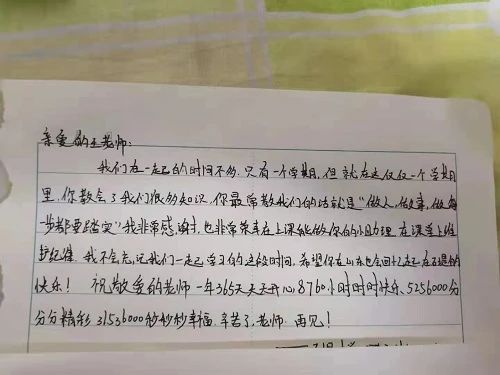 亲爱的王老师:
我们在一起的时间不多.只有一个学期,但就在这仅仅一个学期
里,你教会了我们很多知识.你最常教我们的话就是"做人,做事,做每
一步都要踏实"我非常感谢,也非常荣幸在上课能做你的小助理在课堂上维
护纪律.我不会忘记我们一起学习的这段时间.希望你在山东也会回忆起在一起的
快乐! 祝敬爱的老师一年365天天天开心,8760小时时时快乐、5256000分
分分精彩 31536000秒秒秒幸福.辛苦了,老师.再见!